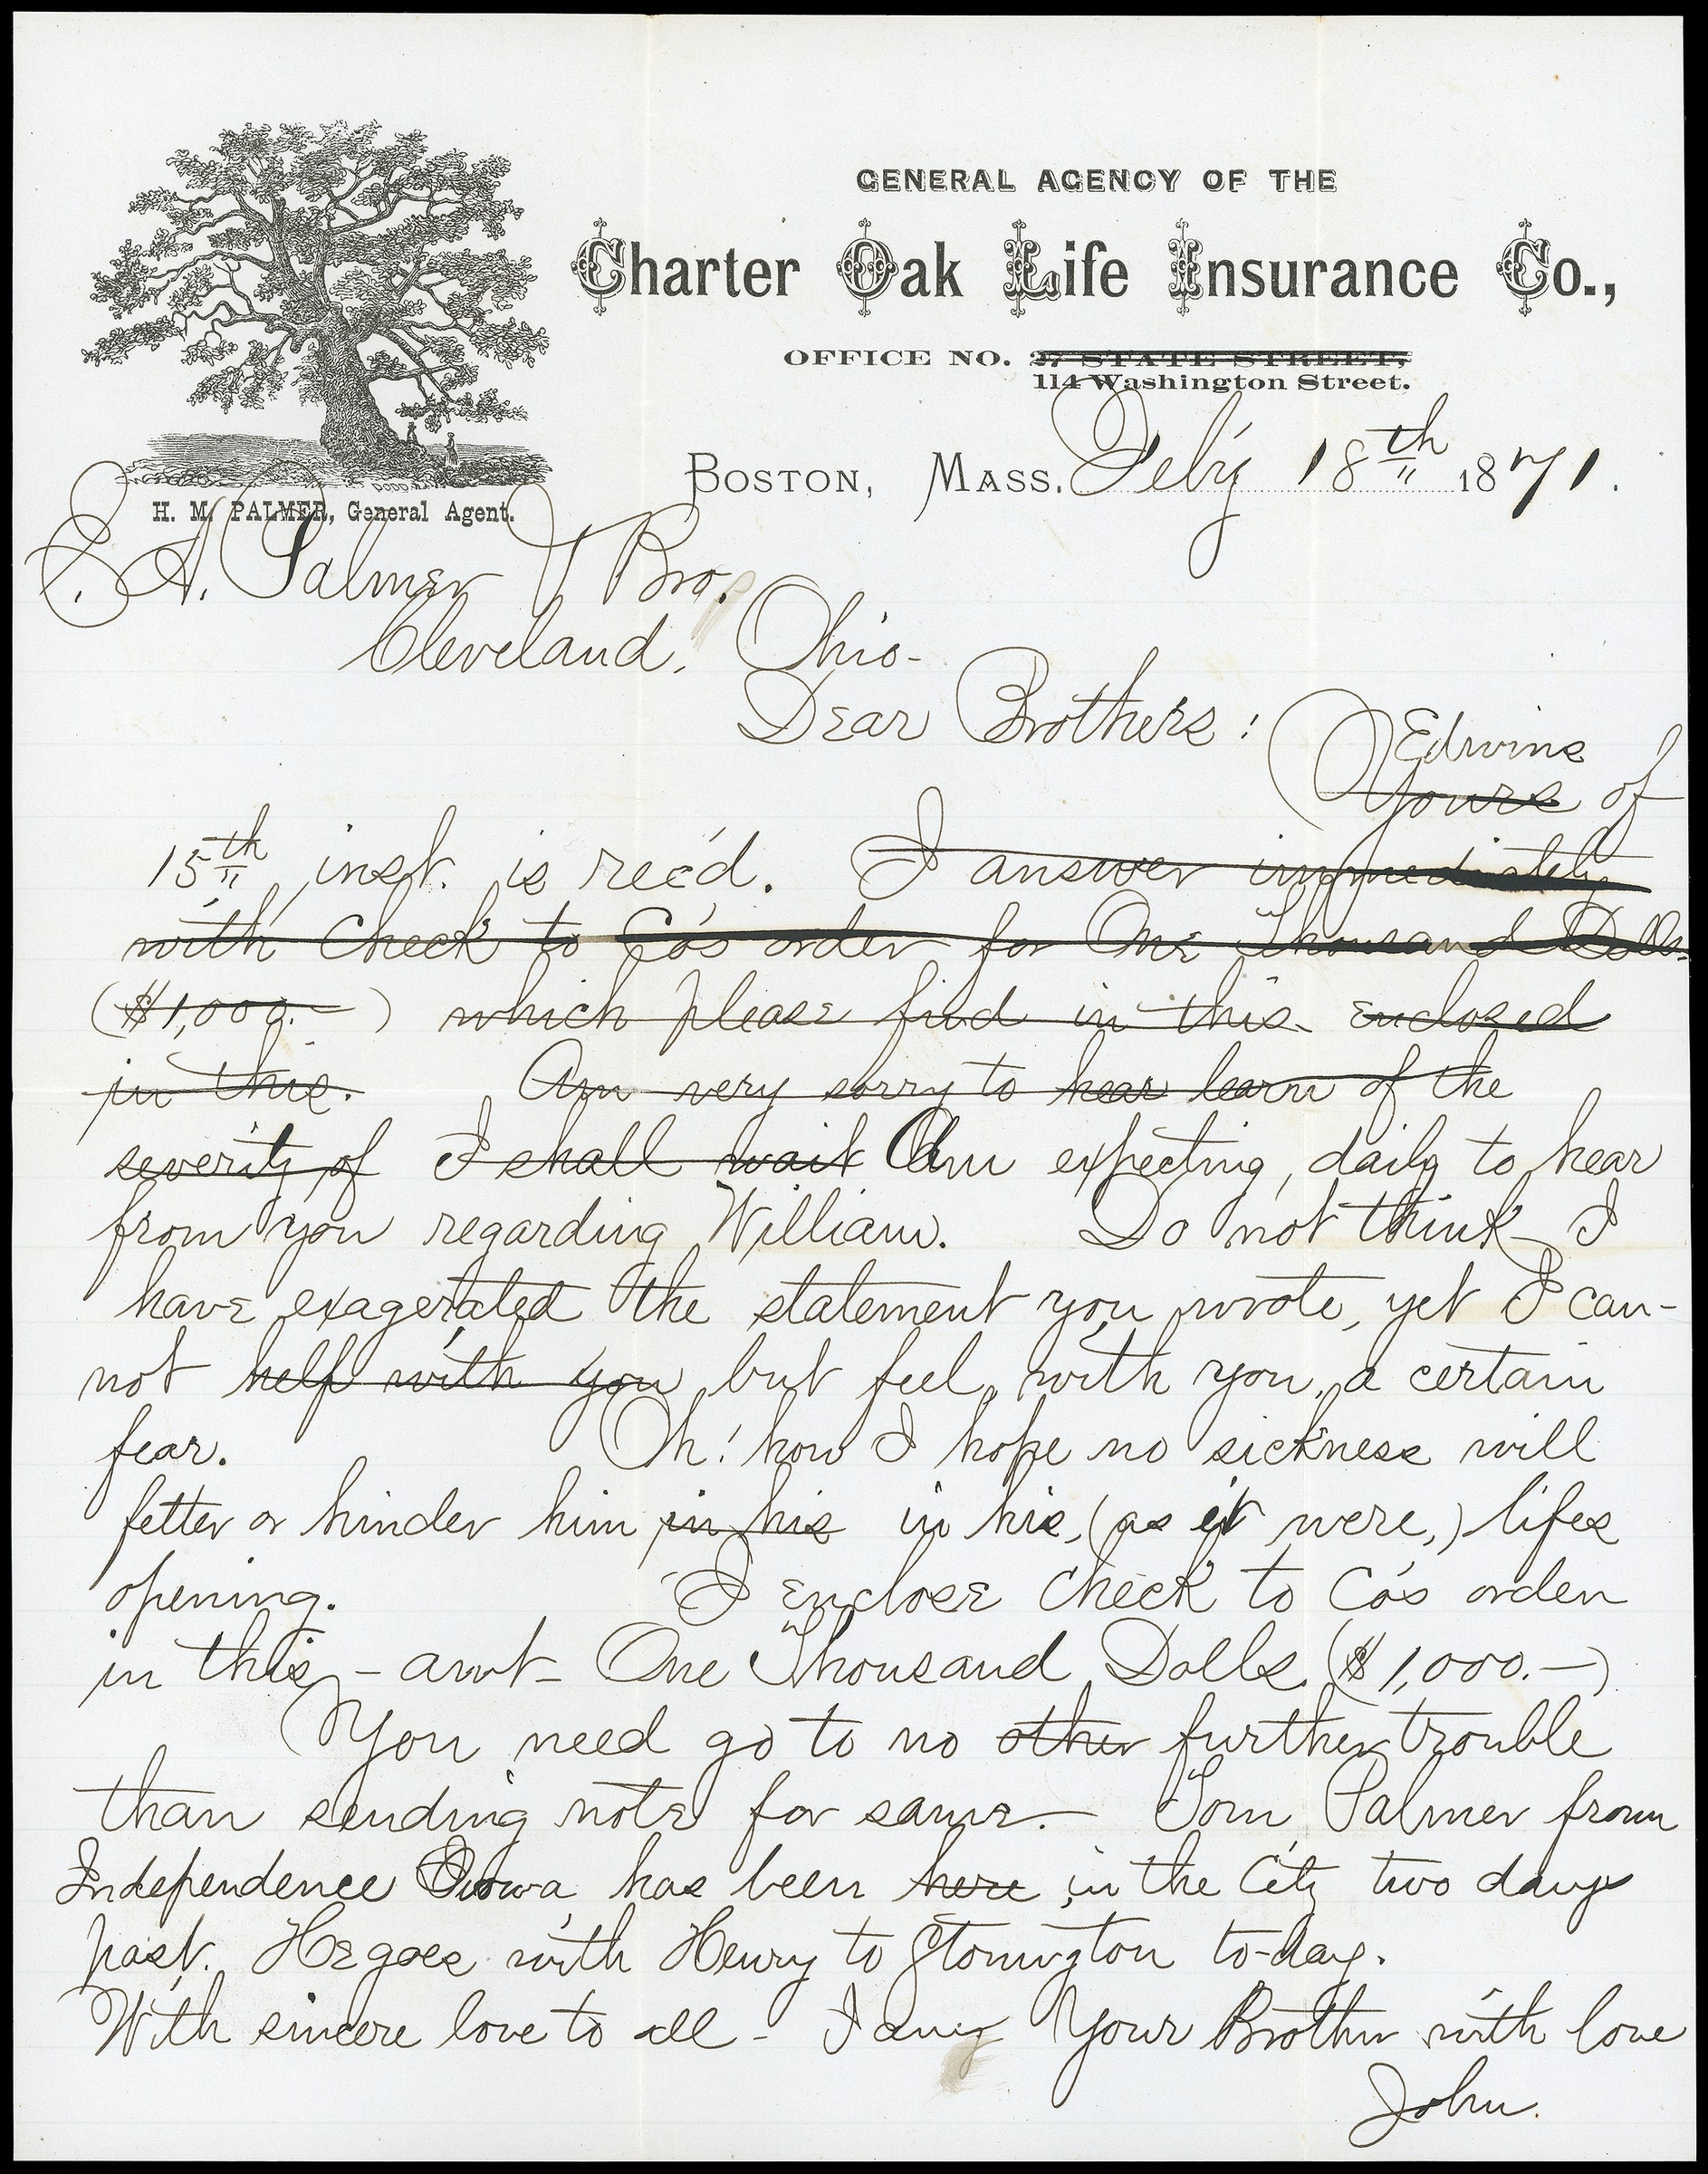 GENERAL AGENCY OF THE
Charter Oak Life Insurance Co.,
OFFICE NO. 27 STATE STREET,
114 Washington Street.
Boston, Mass. Feb'y 18th 1871.
H. M. PALMER, General Agent.
E. A. Palmer & Bro.
Cleveland, Ohio-
Dear Brothers:
Edwins
Yours of
15th inst. is rec'd. I answer immediately
with Check to Co's order for One Thousand Dolls.
($1,000.-) which please find in this. enclosed
in this. Am very sorry to hear learn of the
severity of I shall wait Am expecting, daily to hear
from you regarding William. Do not think I
have exagerated the statement you wrote, yet I can-
not help with you but feel, with you, a certain
fear. Oh! how I hope no sickness will
fetter or hinder him in his in his, (as it were,) lifes
opening. I enclose Check to Co's order
in this - amt - One Thousand Dolls. ($1,000.-)
You need go to no other further trouble
than sending note for same. Tom Palmer from
Independence Iowa, has been here in the City two days
past. He goes with Henry to Stonington to-day.
With sincere love to all - I am Your Brother with love
John.